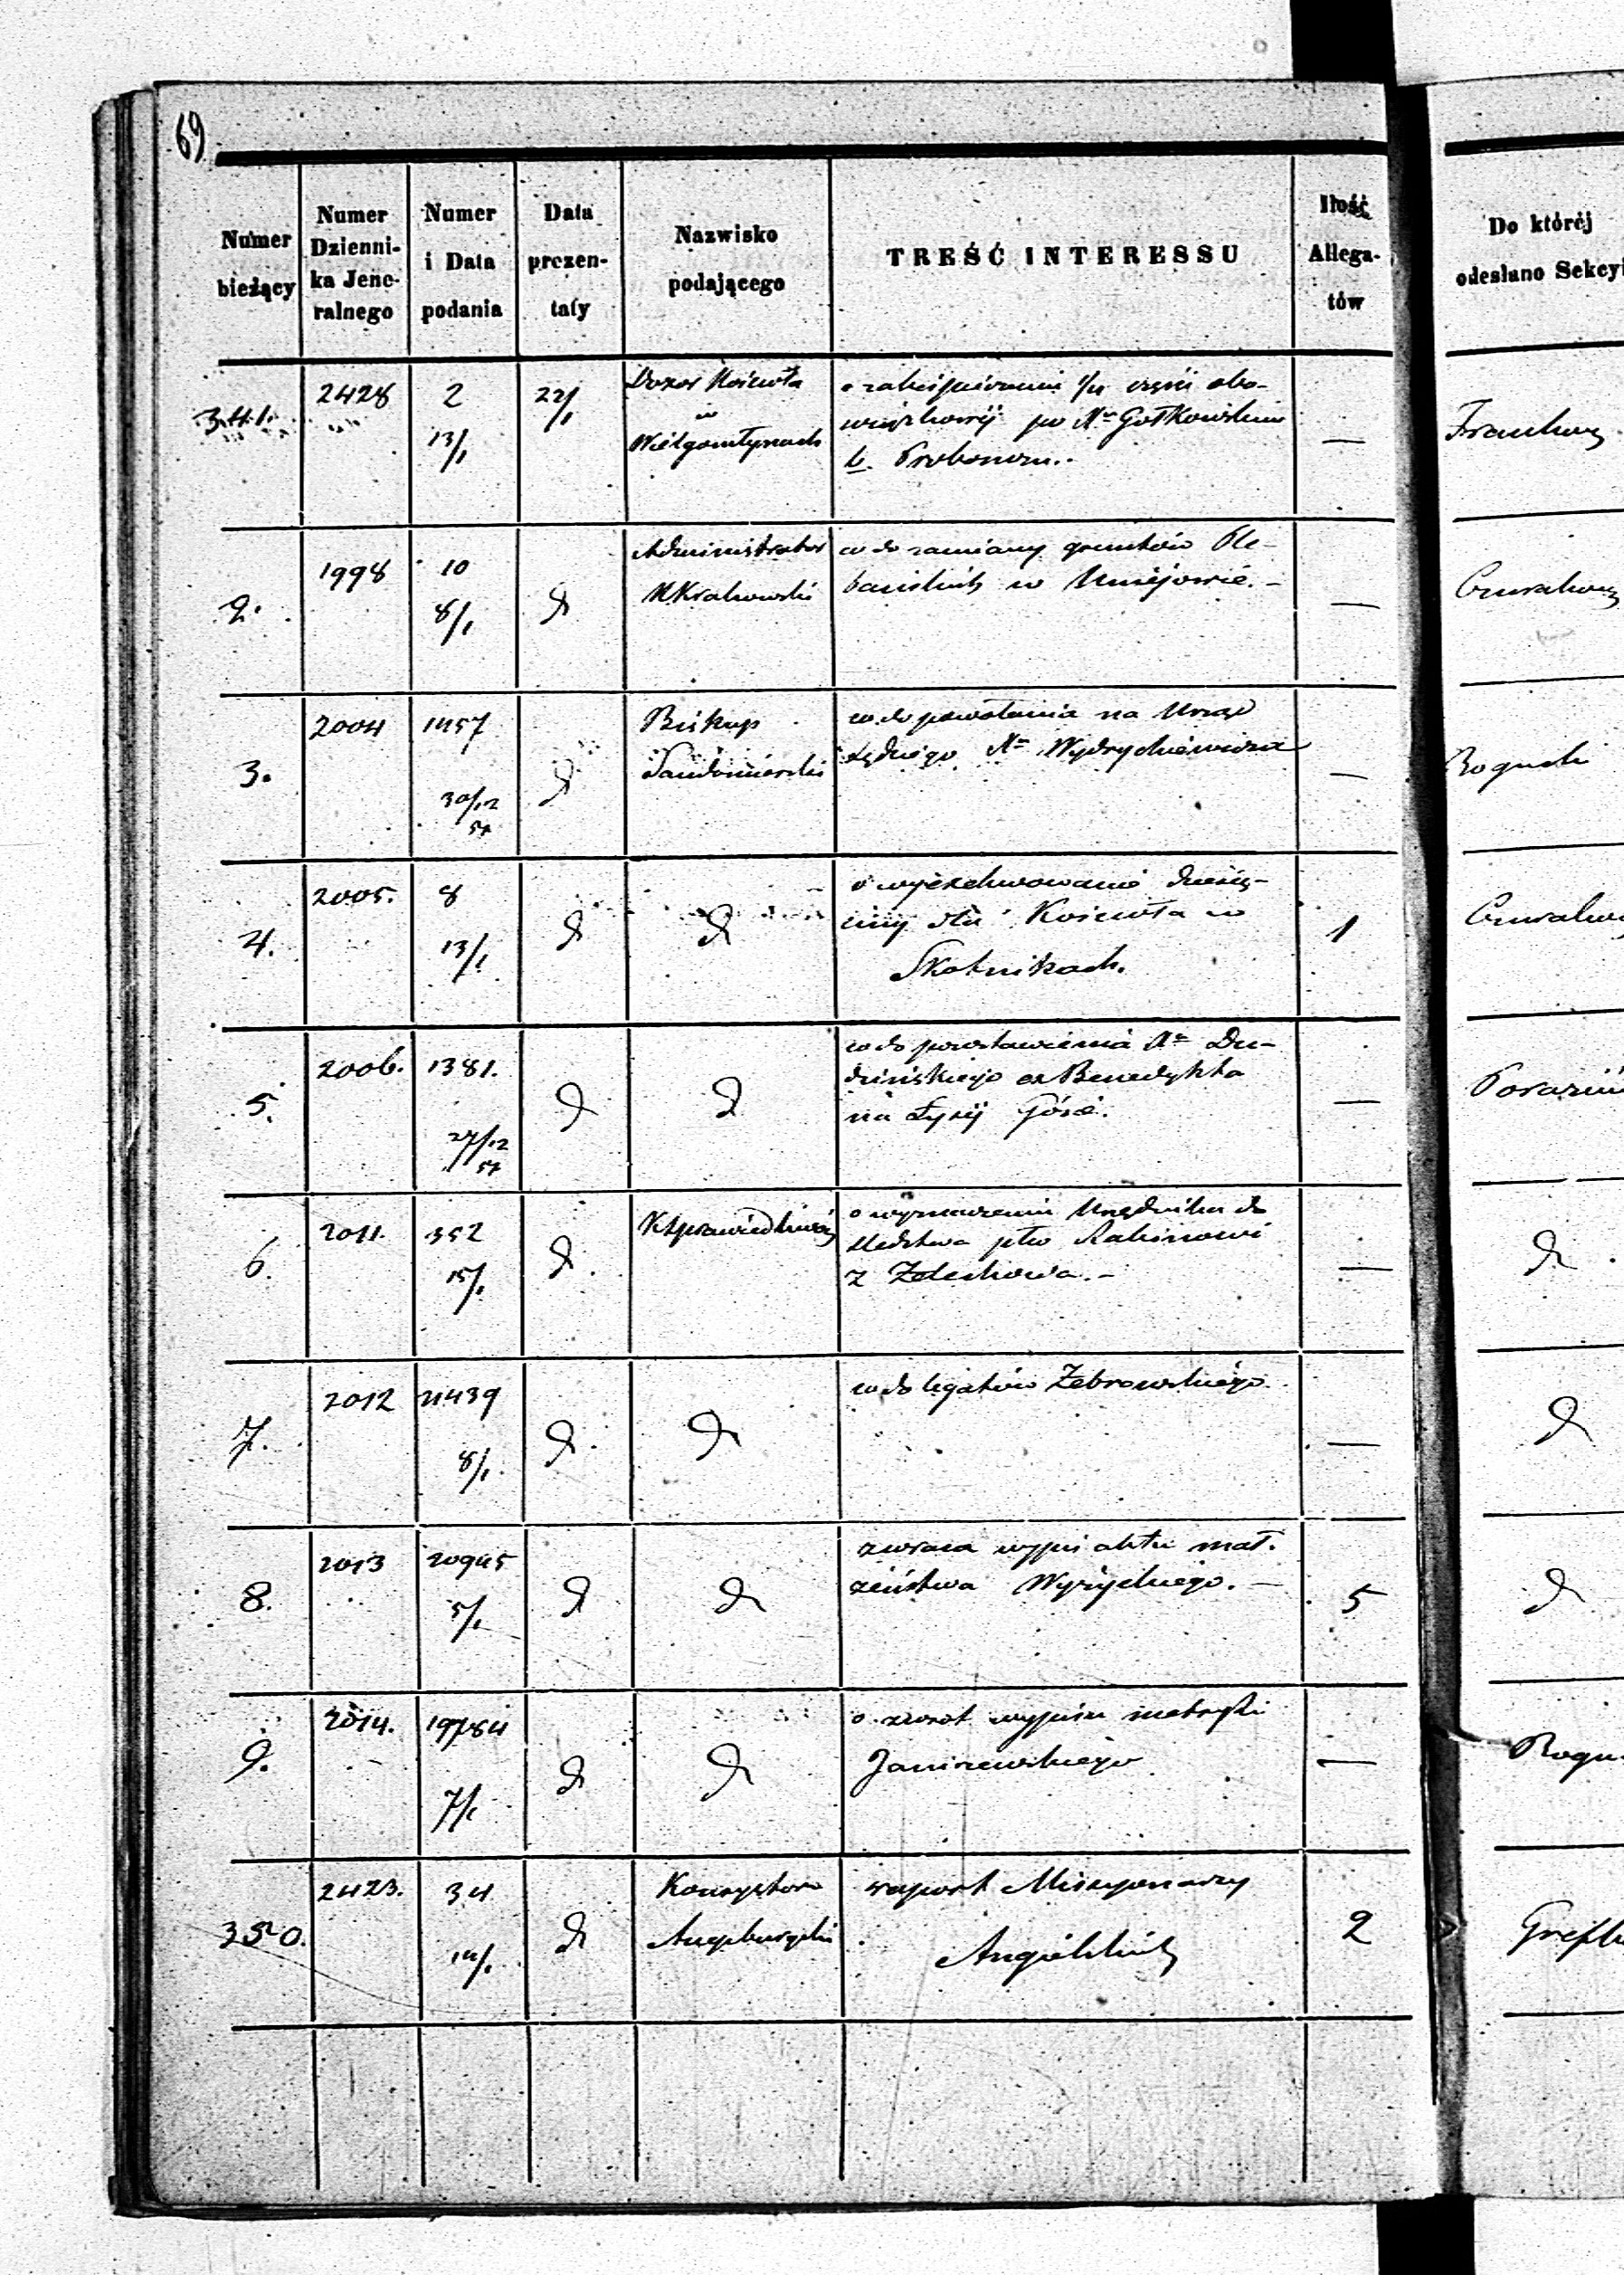 69
Numer bieżący
Numer Dzienni- ka Jene- ralnego
Numer i Data podania
Data prezen- taty
Nazwisko podającego
TREŚĆ INTERESSU
Ilość Allega- tów
Do któréj odesłano Sekcyi
341. 2428 2 13/1 22/1
Dozor Kościoła
w
Wielgomłynach
o zabezpieczenie 1/4 części obo-
po Xe Gołkowskim
b. Proboszczu. —
2. 1998 10 8/1 D
Administrator
KKrakowski
co do zamiany gruntów Ple-
bańskich w Uniejowie. — —
3. 2004 1457 30/12 57 D
Biskup
Sandomierski
co do powołania na Urząd
Sędziego Xe Wydrychiewicza —
4. 2005. 8 13/1 D D
o wyexekwowanie dziesię-
ciny dla Kościoła w
Skotnikach. 1
5. 2006. 1381. 27/12 57 D D
co do pozostawienia Xe Du-
dzińskiego ex Benedykta
na Łysej Górze. —
6. 2011. 352 15/1 D.
KSprawiedliwości
o wyznaczenie Urzędnika do
śledztwa płw Rabinowi
z Żelechowa. — — D
7. 2012 21439 8/1 D. D
co do legatów Żebrowskiego. — D
8. 2013 20945 5/1 D D
zwraca wypis aktu mał.
żeństwa Wyrzyckiego. — 5 D
9. 2014. 19784 7/1 D D
o zwrot wypisu metryki
Janiszewskiego —
350. 2423. 34 14/1 D
Konsystorz
Augsburgski
raport Missyonarzy
Angielskich 2